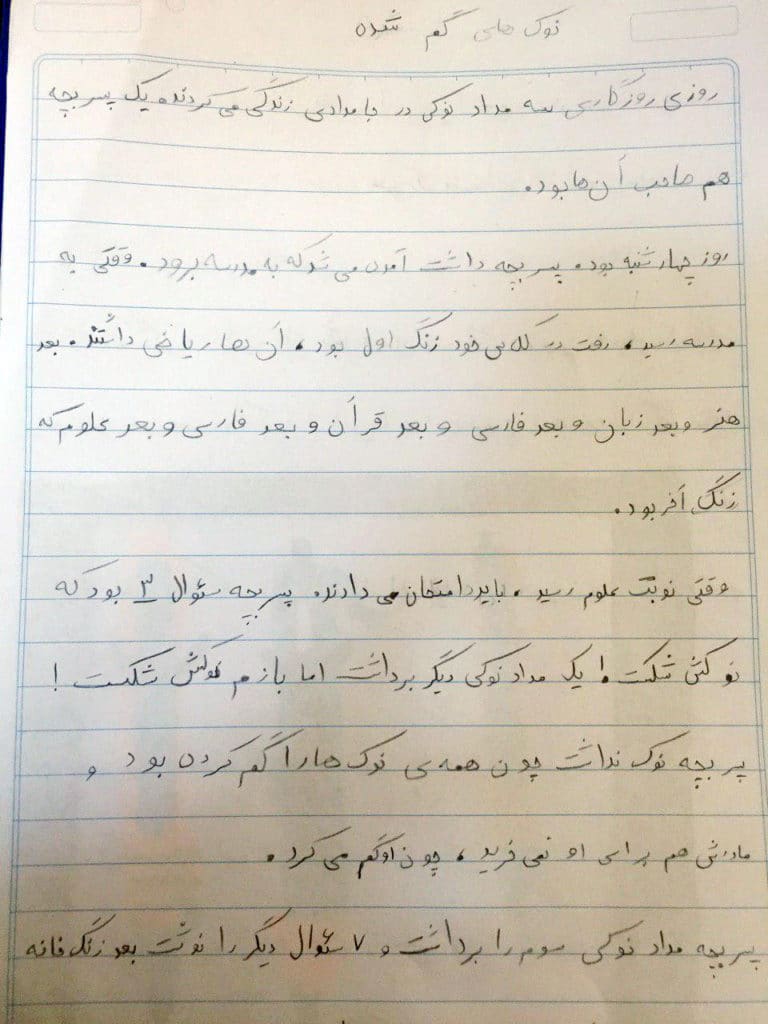 نوک های گم شده
روزی روزگاری سه مداد نوکی در جامدادی زندگی می کردند. یک پسر بچه
هم صاحب آن ها بود.
روز چهارشنبه بود. پسر بچه داشت آماده می شد که به مدرسه برود. وقتی به
مدرسه رسید، رفت در کلاس خود زنگ اول بود، آن ها ریاضی داشتند. بعد
هنر و بعد زبان و بعد فارسی و بعد قرآن و بعد فارسی و بعد علوم که
زنگ آخر بود.
وقتی نوبت علوم رسید، باید امتحان می دادند. پسر بچه سئوال ۳ بود که
نوکش شکست! یک مداد نوکی دیگر برداشت اما بازم نوکش شکست!
پسر بچه نوک نداشت چون همه ی نوک ها را گم کرده بود و
مادرش هم برای او نمی خرید، چون او گم می کرد.
پسر بچه مداد نوکی سوم را برداشت و ۷ سئوال دیگر را نوشت بعد زنگ خانه